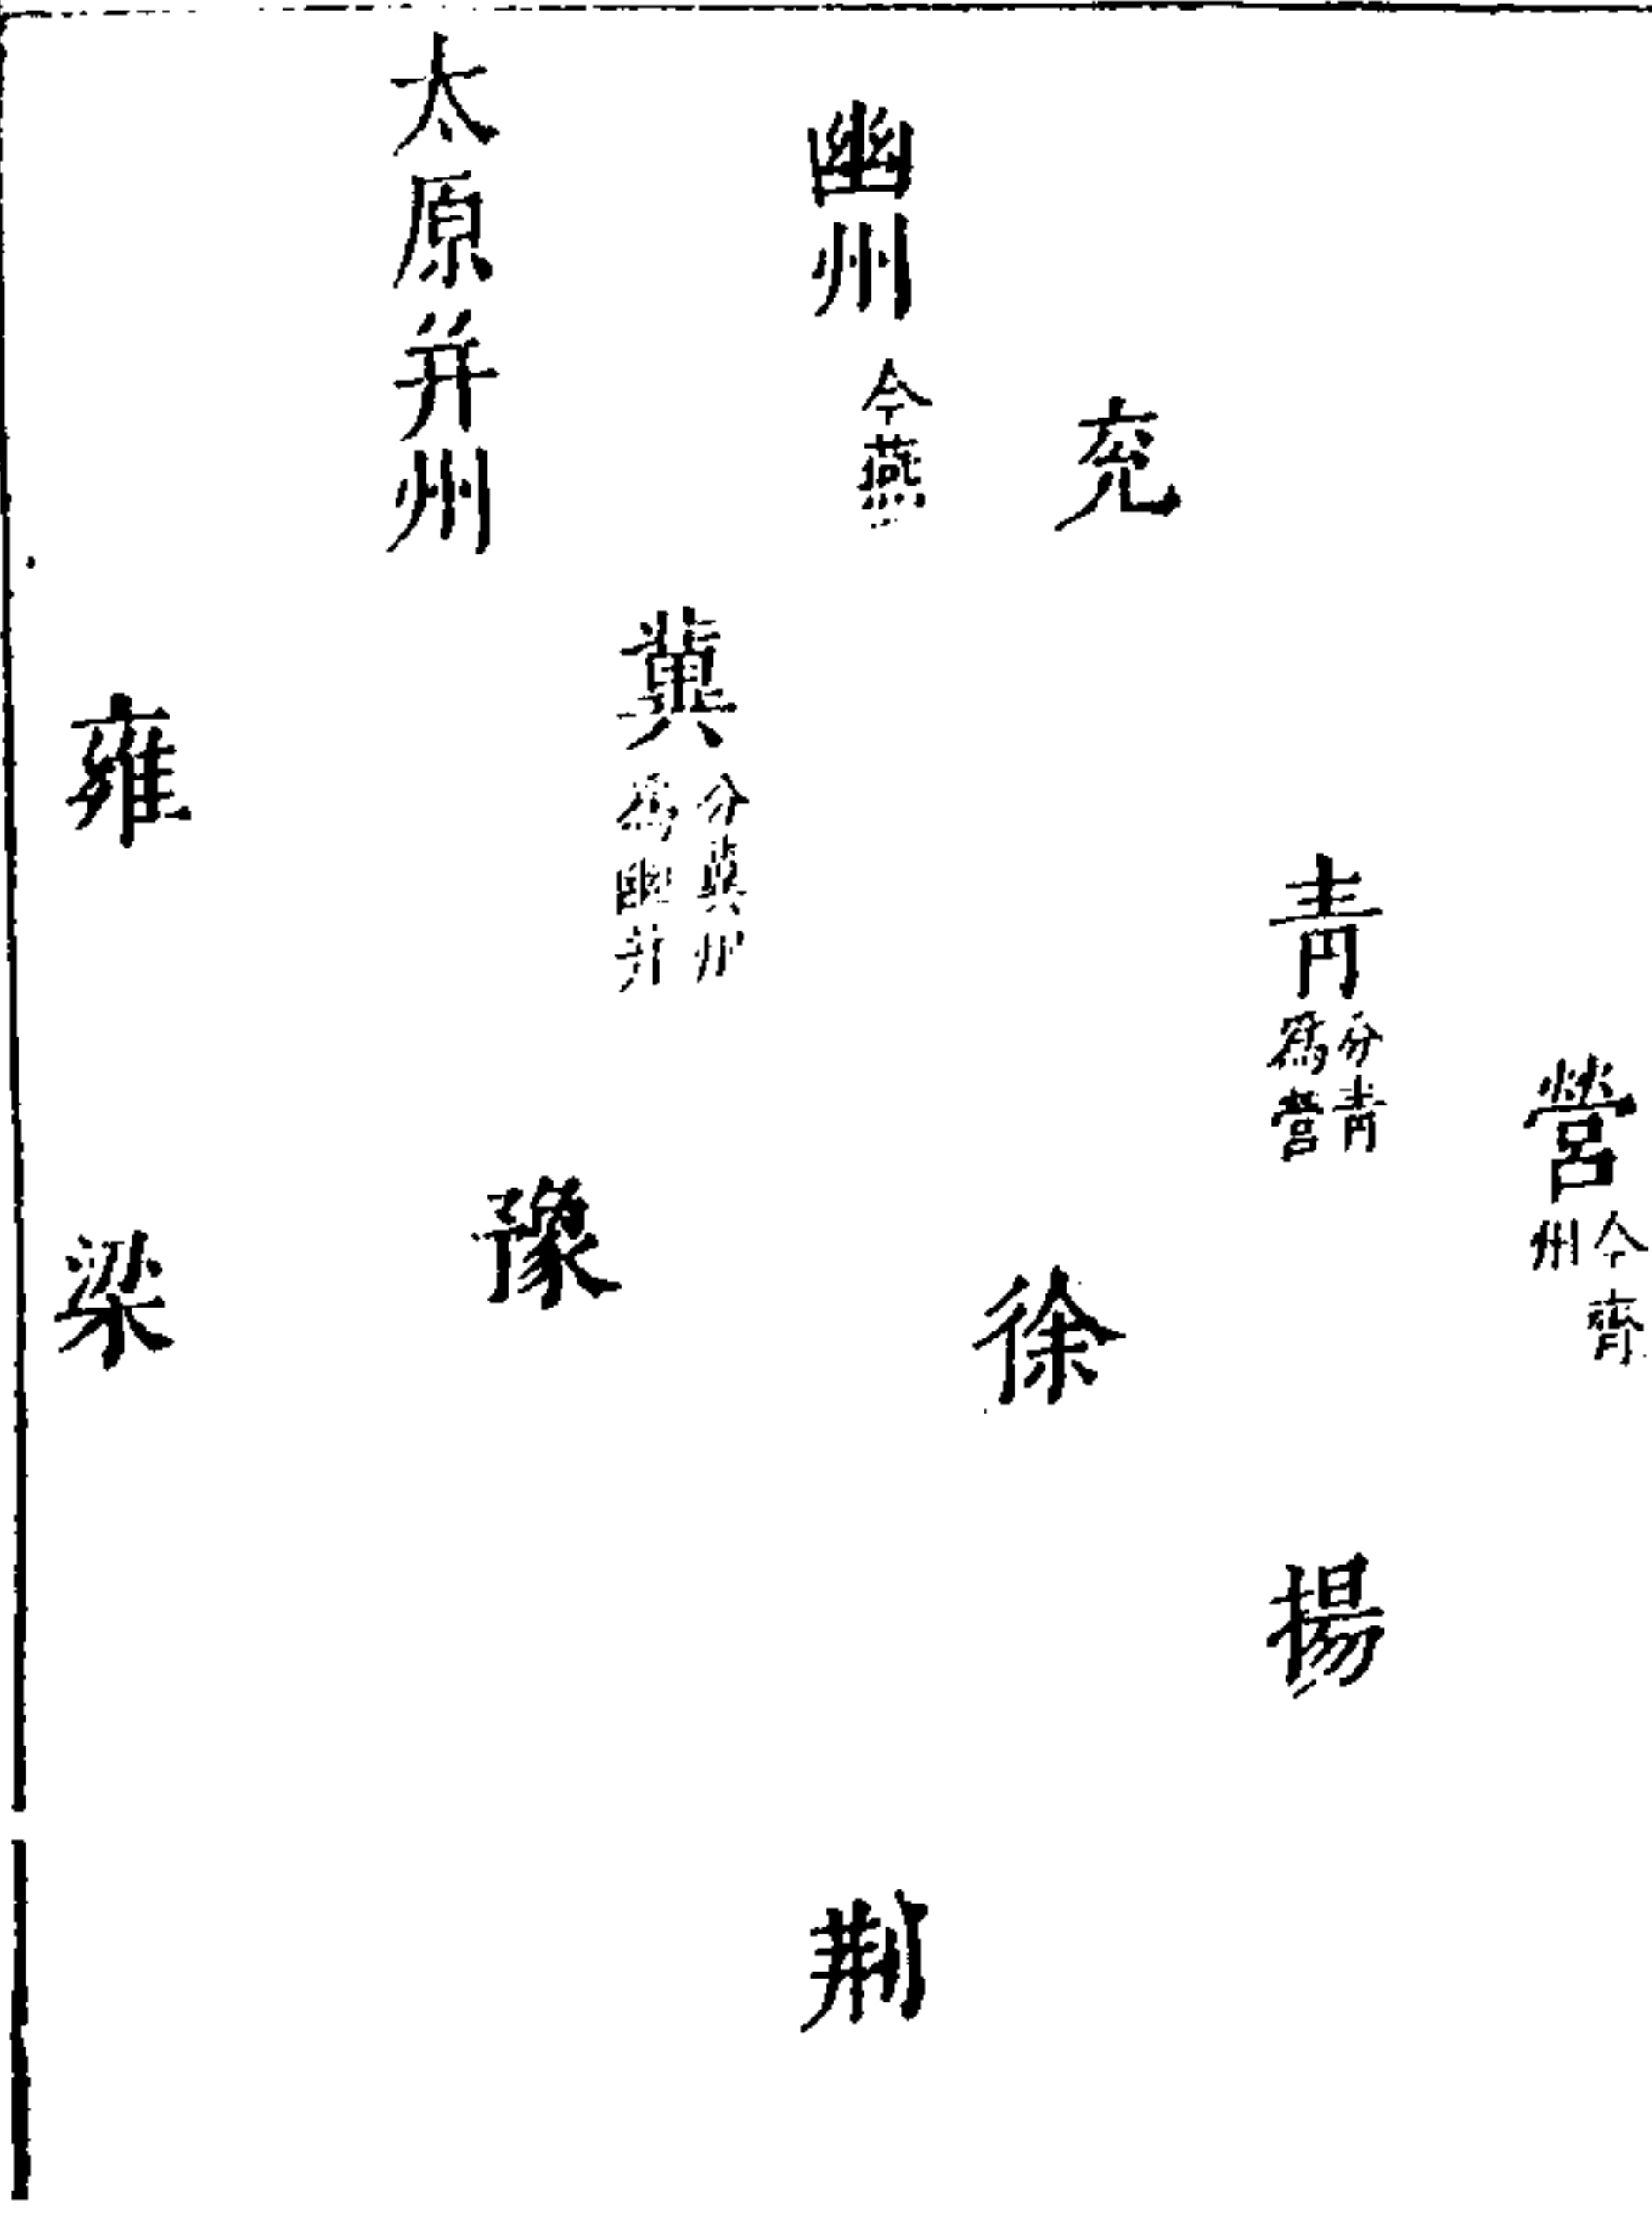 營
今齊
州
青
分青
爲營
揚
兗
徐
幽州
今燕
荆
冀
分冀州
爲幽并
豫
太原并州
雍
梁